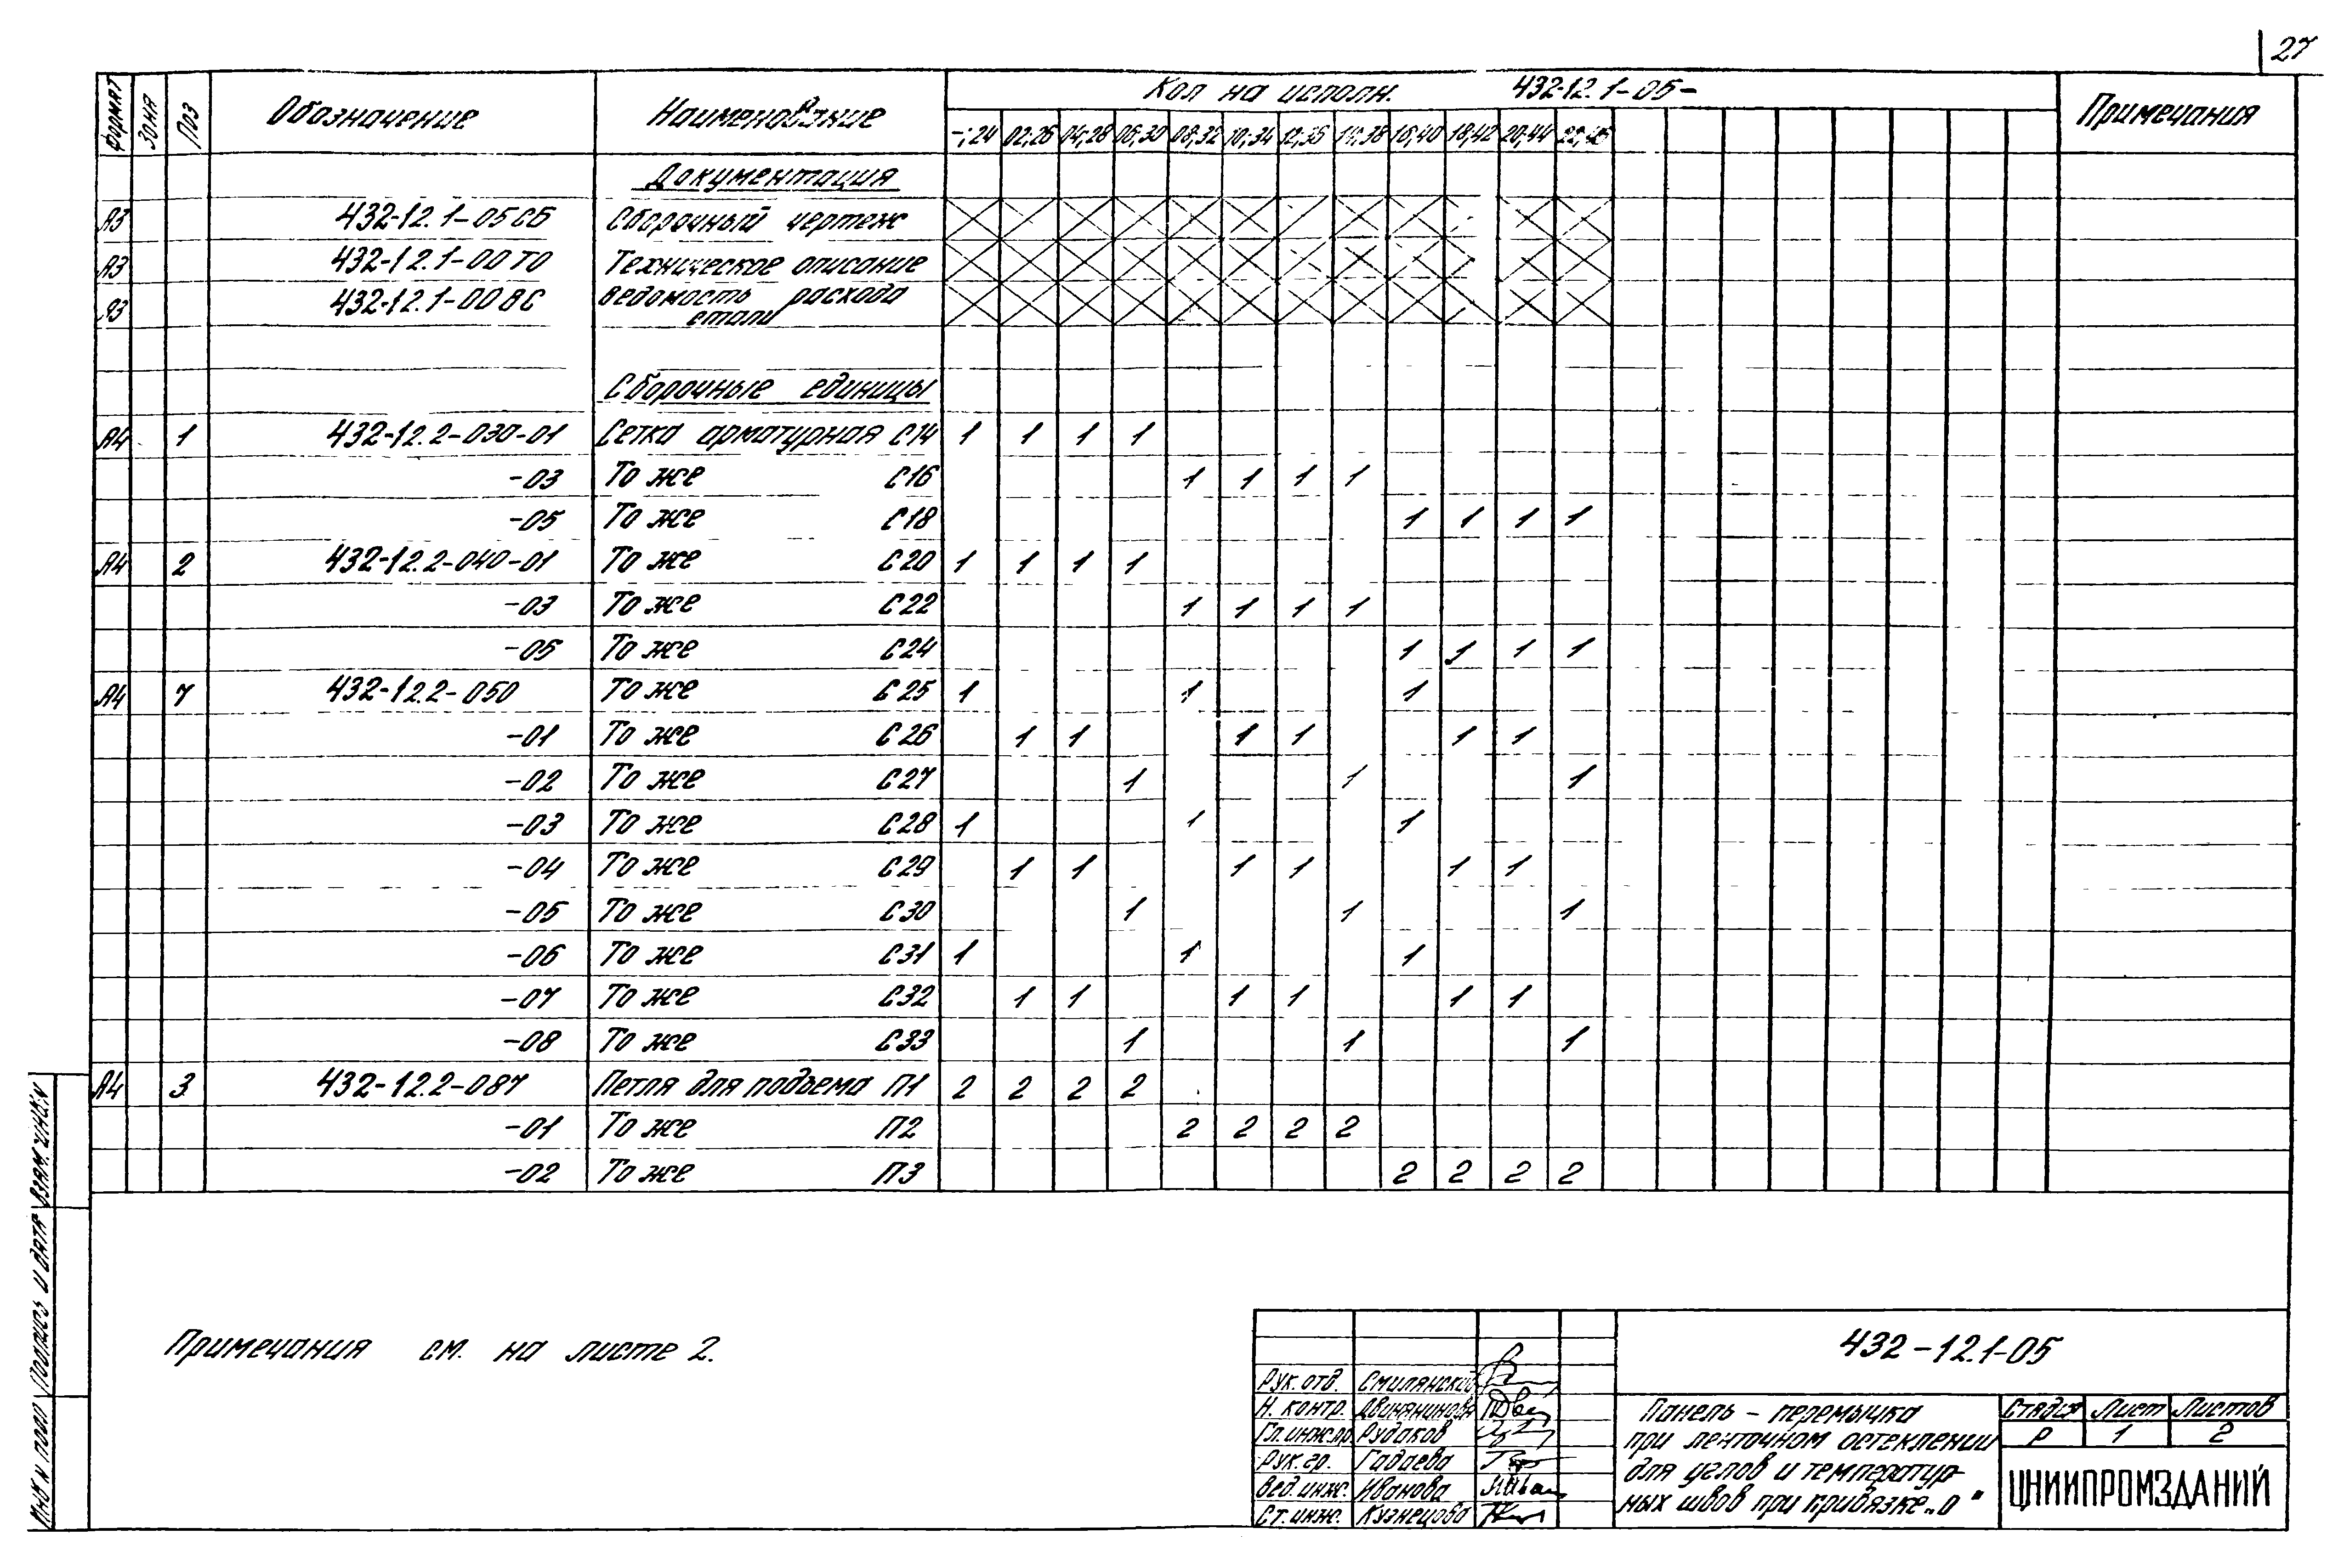 27
Формат Зона Поз Обозначение Наименование Кол на исполн. 432-12.1-05- Примечания
-;24 02;26 04;28 06;30 08;32 10;34 12;36 14;38 16;40 18;42 20;44 22;46
Документация
А3 432-12.1-05СБ Сборочный чертеж
А3 432-12.1-00ТО Техническое описание
А3 432-12.1-00ВС Ведомость расхода
стали
Сборочные единицы
А4 1 432-12.2-030-01 Сетка арматурная С14 1 1 1 1
-03 То же С16 1 1 1 1
-05 То же С18 1 1 1 1
А4 2 432-12.2-040-01 То же С20 1 1 1 1
-03 То же С22 1 1 1 1
-05 То же С24 1 1 1 1
А4 7 432-12.2-050 То же С25 1 1 1
-01 То же С26 1 1 1 1 1 1
-02 То же С27 1 1 1
-03 То же С28 1 1 1
-04 То же С29 1 1 1 1 1 1
-05 То же С30 1 1 1
-06 То же С31 1 1 1
-07 То же С32 1 1 1 1 1 1
-08 То же С33 1 1 1
А4 3 432-12.2-087 Петля для подъема П1 2 2 2 2
-01 То же П2 2 2 2 2
-02 То же П3 2 2 2 2
Примечания см. на листе 2.
432-12.1-05
Рук. отд. Смилянский
Н. контр. Двинянинова
Гл. инж. пр. Рудаков
Рук. гр. Гадаева
Вед. инж. Иванова
Ст. инж. Кузнецова
Панель-перемычка
при ленточном остеклении
для углов и температур-
ных швов при привязке „0"
Стадия Лист Листов
Р 1 2
ЦНИИПРОМЗДАНИЙ
Инв N подл Подпись и дата Взам. инв. N